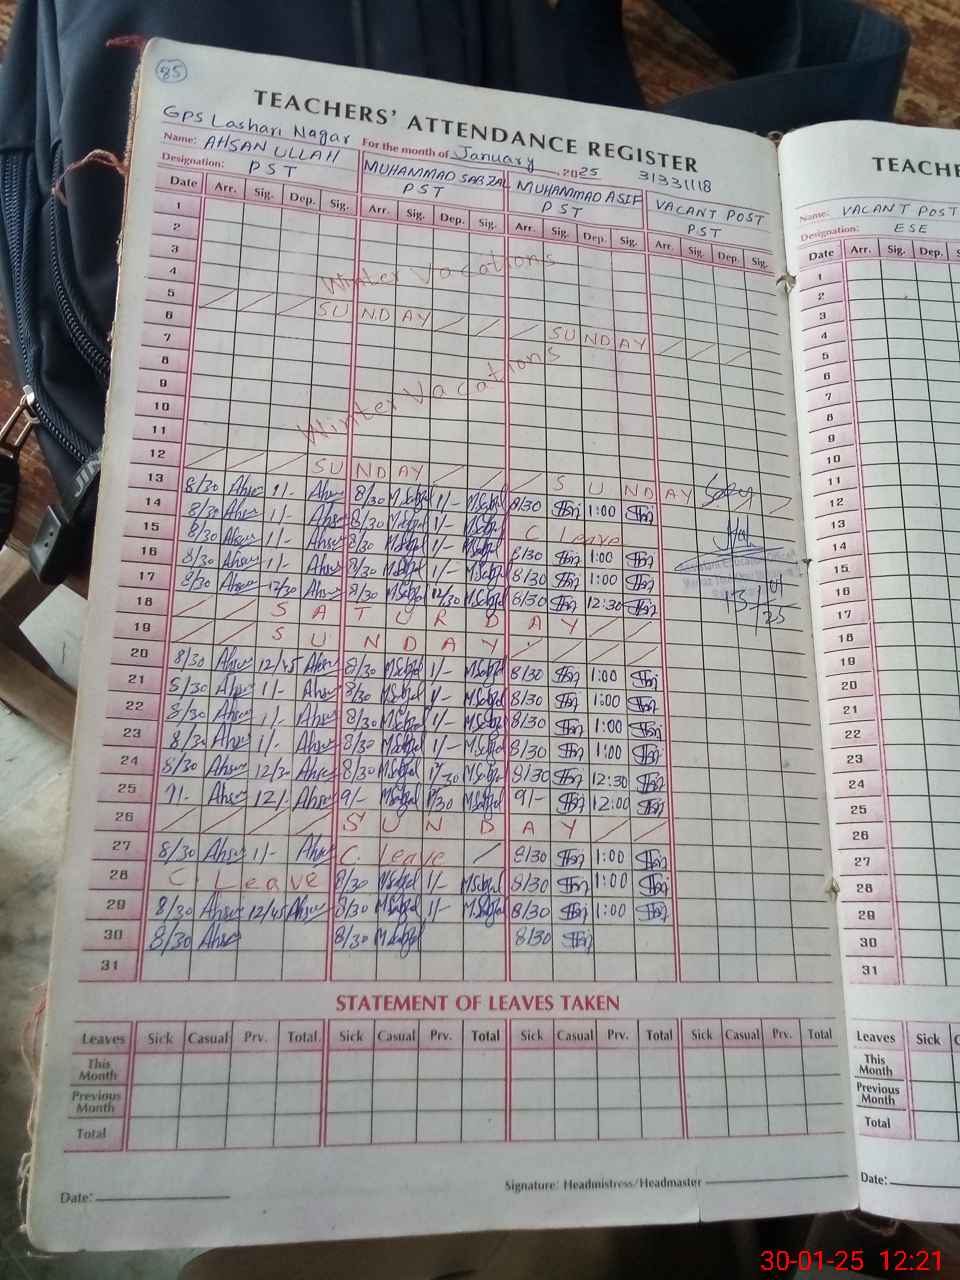 85
TEACHERS' ATTENDANCE REGISTER
GPS Lashari Nagar For the month of January 2025 31331118
Name: AHSAN ULLAH MUHAMMAD SABZAL MUHAMMAD ASIF VACANT POST
Designation: PST PST PST PST
Date Arr. Sig. Dep. Sig. Arr. Sig. Dep. Sig. Arr. Sig. Dep. Sig. Arr. Sig. Dep. Sig.
1
2
3
Winter Vacations
4
5
SUNDAY
6
SUNDAY
7
8
Winter Vacations
9
10
11
12
SUNDAY
SUNDAY
13 8/30 Ahsan 1/- Ahsan 8/30 M Sabzal 1/- M Sabzal 8/30 1:00
14 8/30 Ahsan 1/- Ahsan 8/30 M Sabzal 1/- M Sabzal C Leave
15 8/30 Ahsan 1/- Ahsan 8/30 M Sabzal 1/- M Sabzal 8/30 1:00
16 8/30 Ahsan 1/- Ahsan 8/30 M Sabzal 1/- M Sabzal 8/30 1:00
17 8/30 Ahsan 12/30 Ahsan 8/30 M Sabzal 12/30 M Sabzal 8/30 12:30
18 SATURDAY
19 SUNDAY
20 8/30 Ahsan 12/45 Ahsan 8/30 M Sabzal 1/- M Sabzal 8/30 1:00
21 8/30 Ahsan 1/- Ahsan 8/30 M Sabzal 1/- M Sabzal 8/30 1:00
22 8/30 Ahsan 1/- Ahsan 8/30 M Sabzal 1/- M Sabzal 8/30 1:00
23 8/30 Ahsan 1/- Ahsan 8/30 M Sabzal 1/- M Sabzal 8/30 1:00
24 8/30 Ahsan 12/30 Ahsan 8/30 M Sabzal 12/30 M Sabzal 8/30 12:30
25 9/- Ahsan 12/- Ahsan 9/- M Sabzal M Sabzal 9/- 12:00
26 SUNDAY
27 8/30 Ahsan 1/- Ahsan C. Leave 8/30 1:00
28 C. Leave 8/30 M Sabzal 1/- M Sabzal 8/30 1:00
29 8/30 Ahsan 12/45 Ahsan 8/30 M Sabzal 1/- M Sabzal 8/30 1:00
30 8/30 Ahsan 8/30 M Sabzal 8/30
31
13/01/25
STATEMENT OF LEAVES TAKEN
Leaves Sick Casual Prv. Total Sick Casual Prv. Total Sick Casual Prv. Total Sick Casual Prv. Total
This Month
Previous Month
Total
Date: Signature: Headmistress/Headmaster
TEACHE
Name: VACANT POST
Designation: ESE
Date Arr. Sig. Dep.
1
2
3
4
5
6
7
8
9
10
11
12
13
14
15
16
17
18
19
20
21
22
23
24
25
26
27
28
29
30
31
Leaves Sick
This Month
Previous Month
Total
Date:
30-01-25 12:21